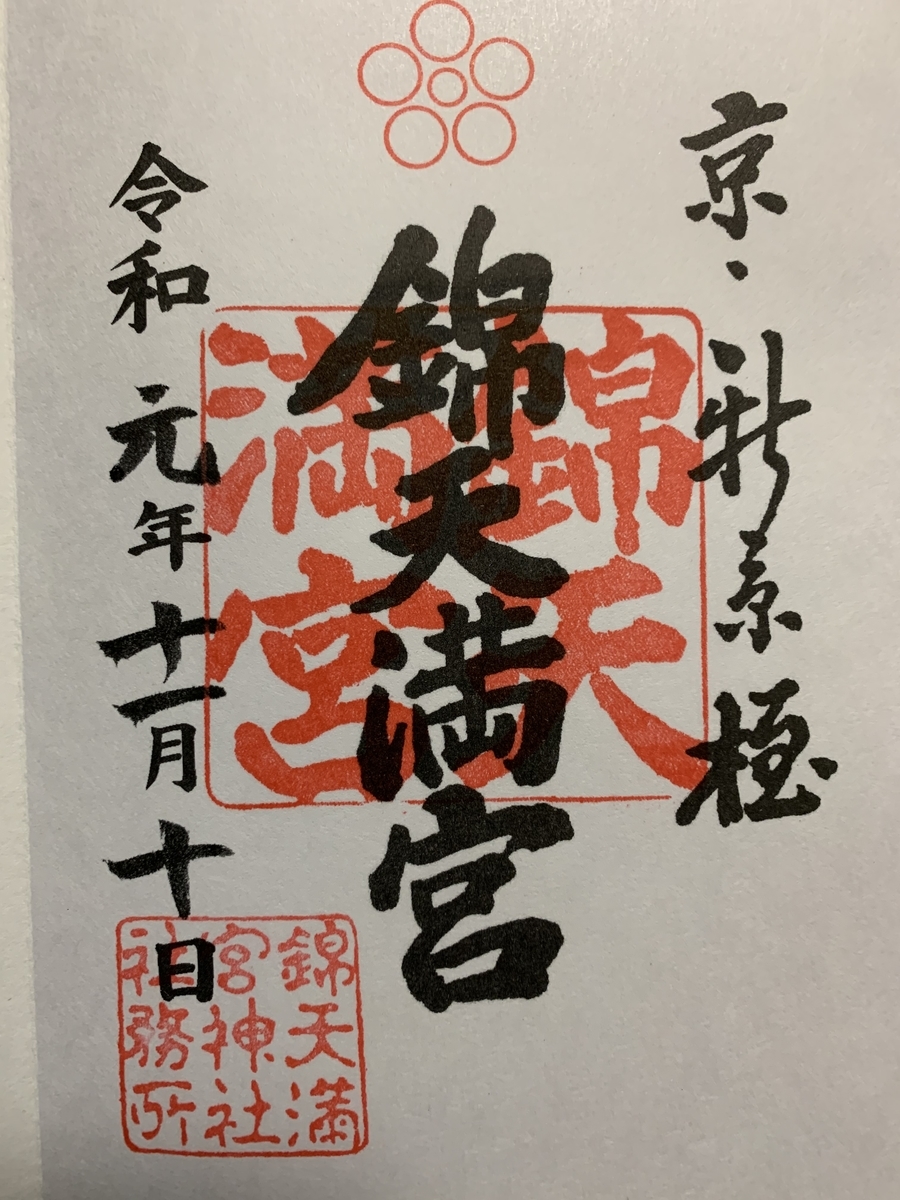 京・新京極
錦天満宮
錦天
満宮
令和元年十一月十日
錦天満
宮神社
社務所